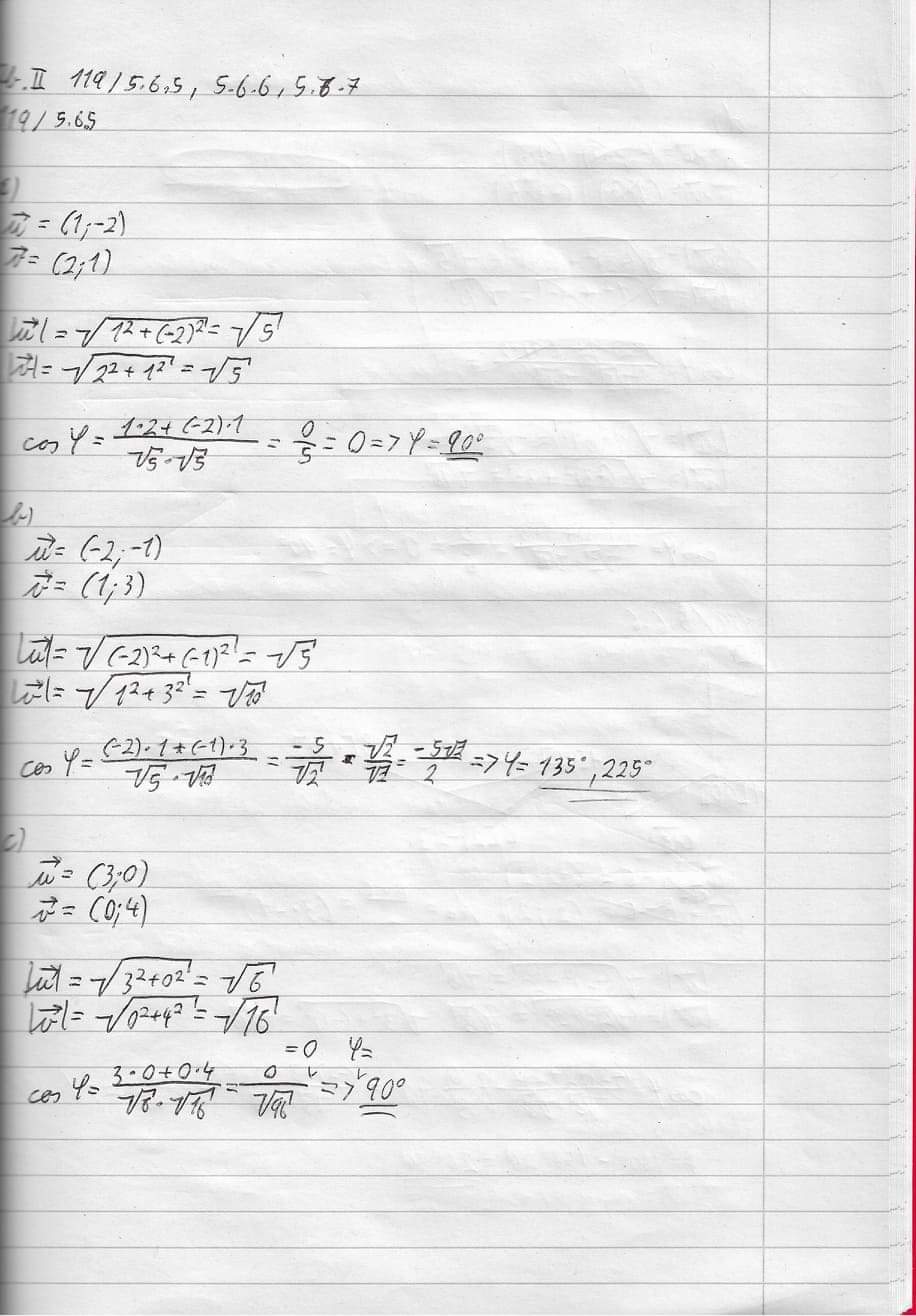 .II 119/5.6.5, 5.6.6, 5.6.7
119/5.6.5
u⃗ = (1;-2)
v⃗ = (2;1)
|u⃗| = √(1²+(-2)²) = √5
|v⃗| = √(2²+1²) = √5
cos φ = (1·2+(-2)·1)/(√5·√5) = 0/5 = 0 => φ = 90°
b)
u⃗ = (-2;-1)
v⃗ = (1;3)
|u⃗| = √((-2)²+(-1)²) = √5
|v⃗| = √(1²+3²) = √10
cos φ = ((-2)·1+(-1)·3)/(√5·√10) = -5/√2 · √2/√2 = -5√2/2 => φ = 135°, 225°
c)
u⃗ = (3;0)
v⃗ = (0;4)
|u⃗| = √(3²+0²) = √6
|v⃗| = √(0²+4²) = √16
=0 φ=
cos φ = (3·0+0·4)/(√6·√16) = 0/√96 => 90°